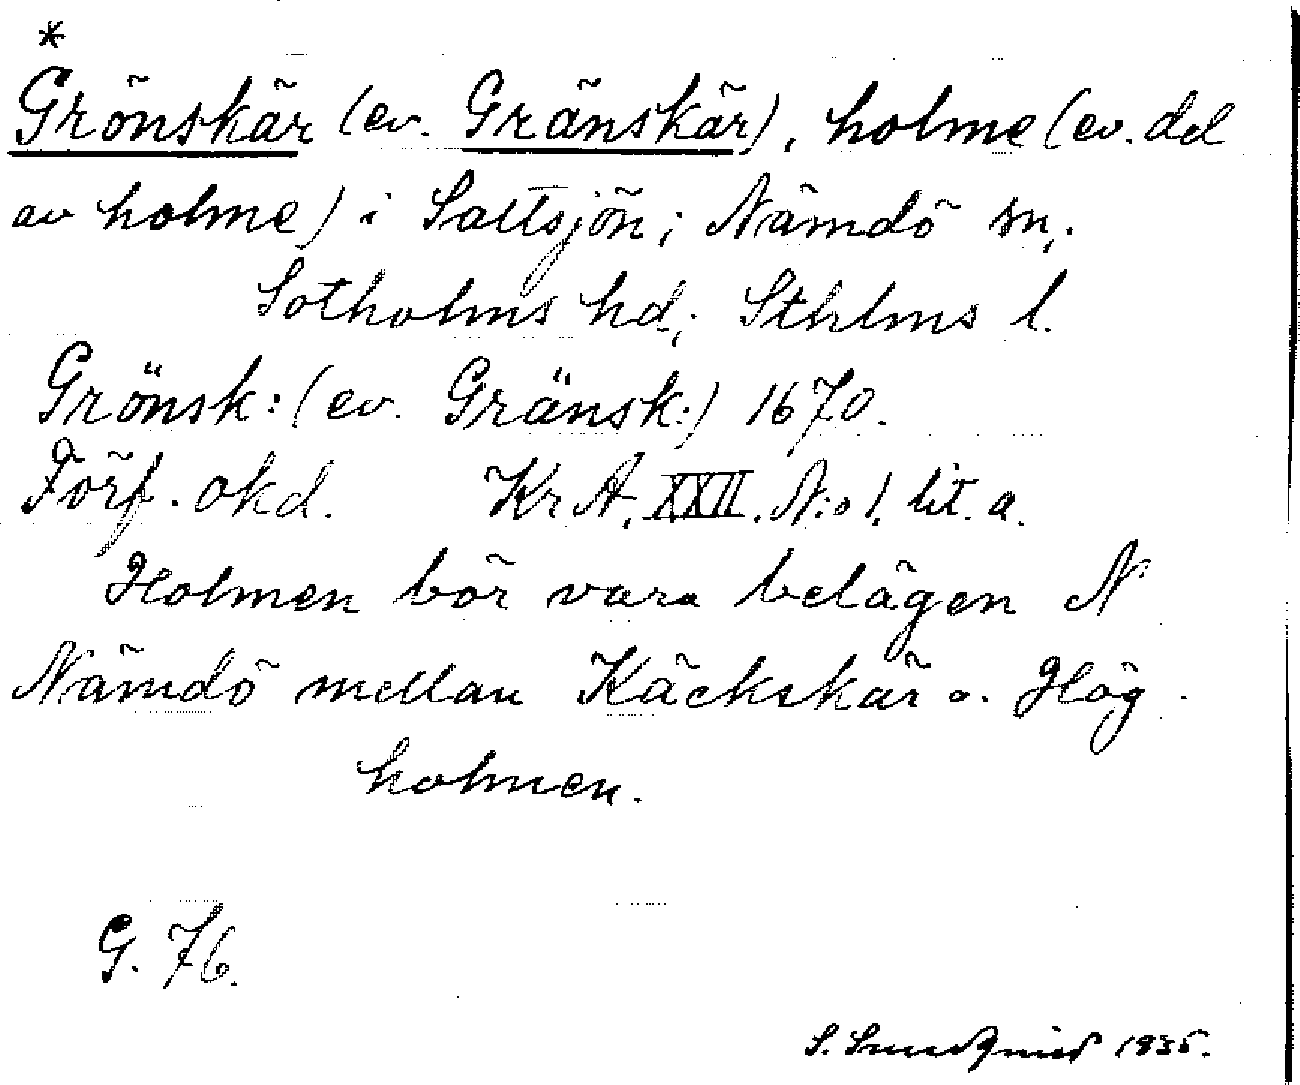 *
Grönskär (ev. Gränskär), holme (ev. del
av holme) i Saltsjön; Nämdö sn,.
Sotholms hd,; Sthlms l.
Grönsk: (ev. Gränsk:) 1670.
Förf. okd. Kr A. XXII. N:o 1. lit. a.
Holmen bör vara belägen N
Nämdö mellan Käckskär o. Hög-
holmen.
G. 76.
S. 1935.